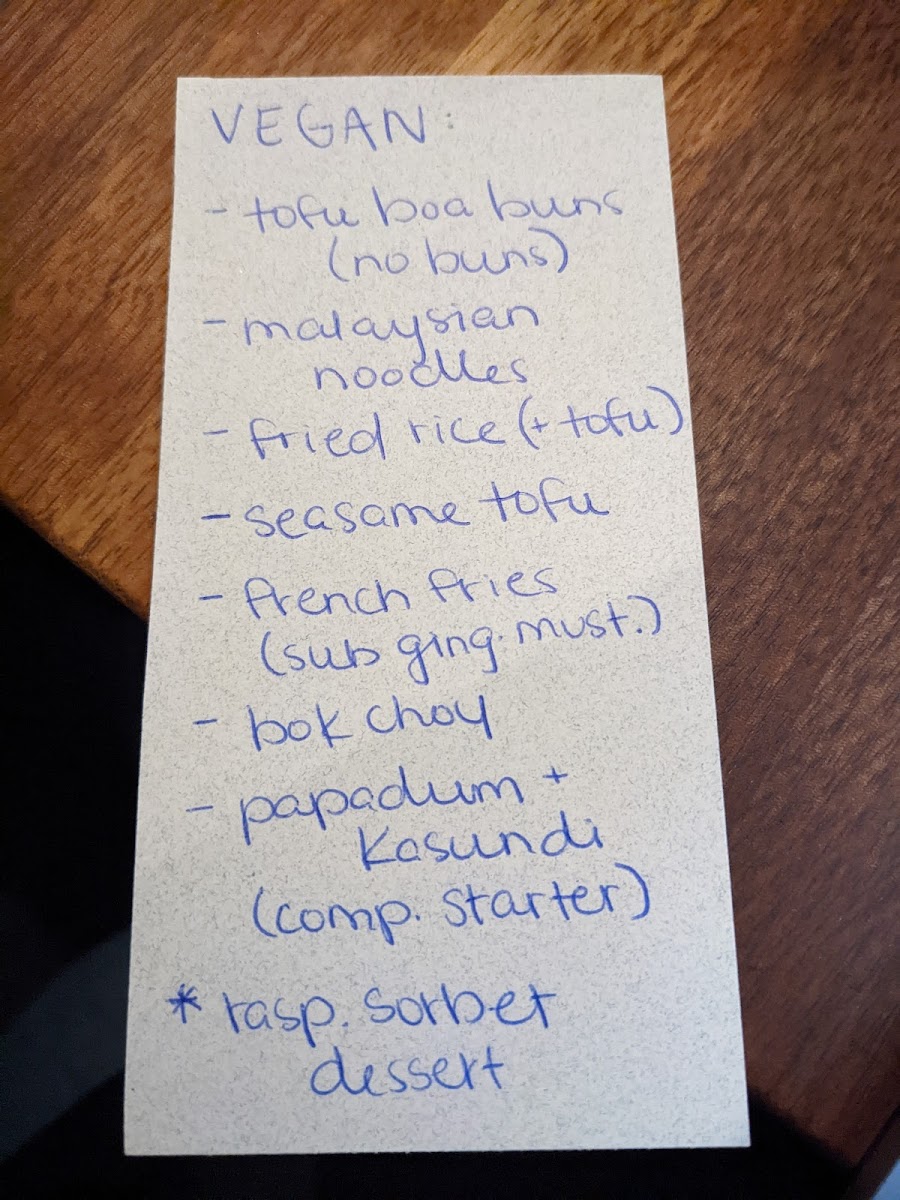 VEGAN:
- tofu boa buns
(no buns)
- malaysian
noodles
- fried rice (+ tofu)
- seasame tofu
- french fries
(sub ging. must.)
- bok choy
- papadum +
Kasundi
(comp. starter)
* rasp. sorbet
dessert